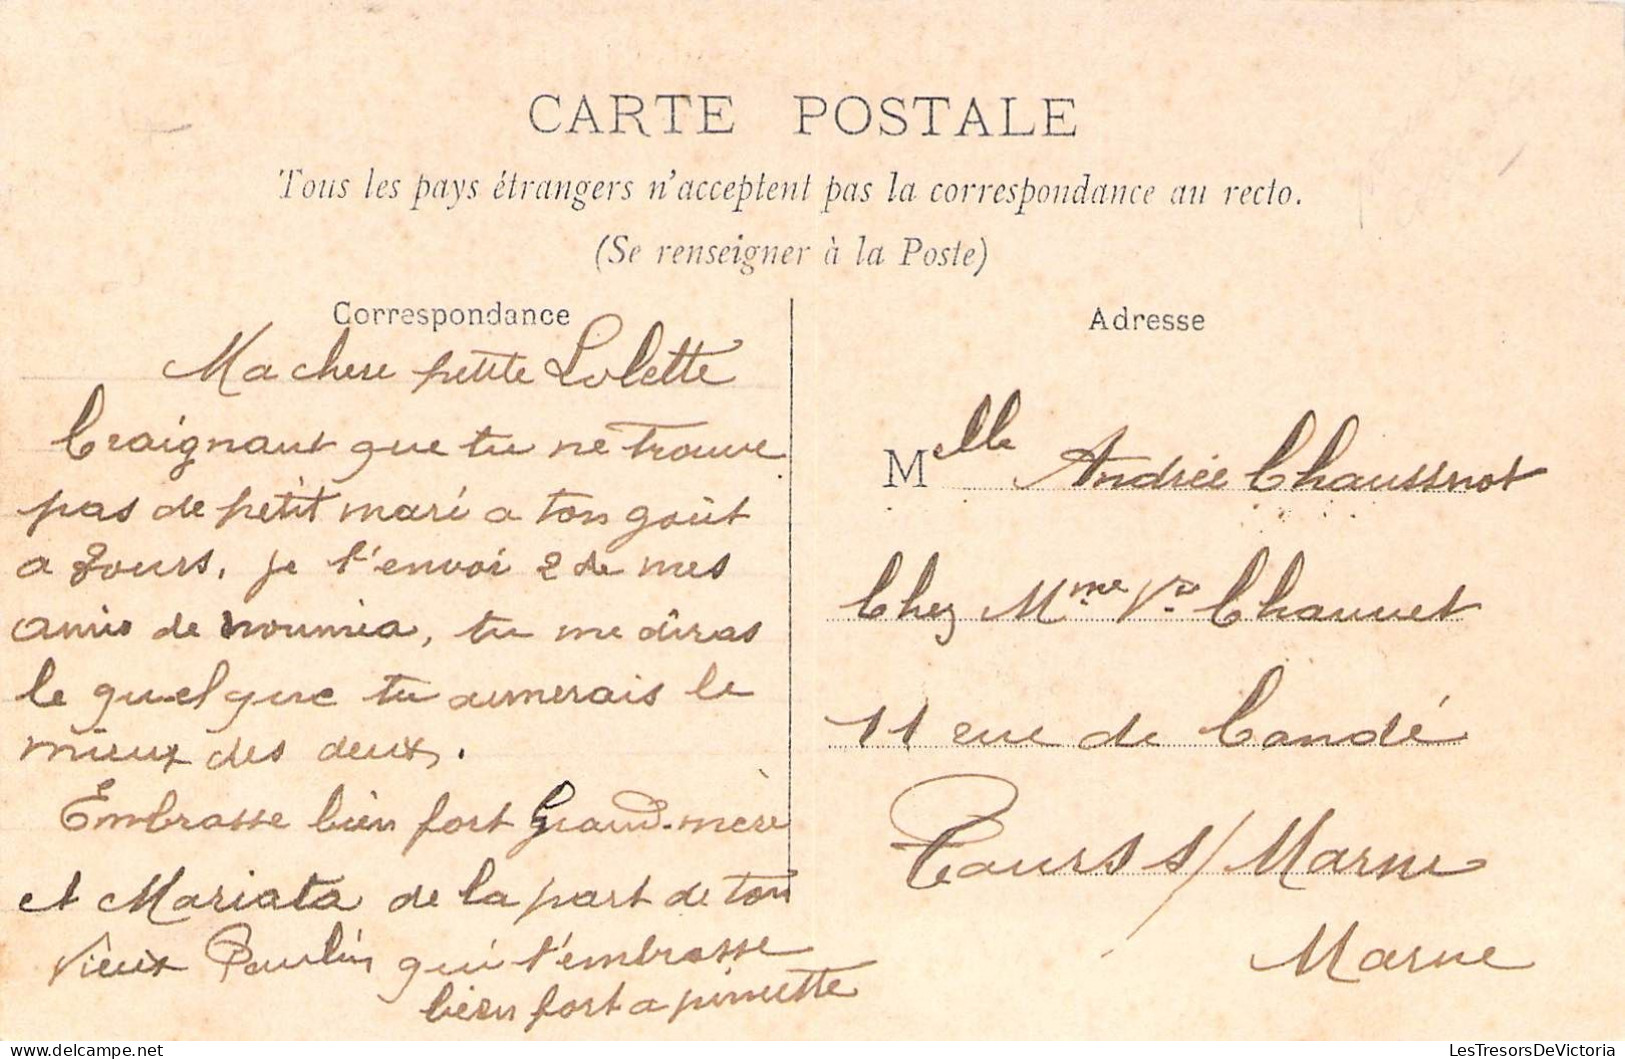 CARTE POSTALE
Tous les pays étrangers n'acceptent pas la correspondance au recto.
(Se renseigner à la Poste)
Correspondance
Ma chere petite Lolette
Craignant que tu ne trouve
pas de petit mari a ton goût
a Tours, je t'envoi 2 de mes
amis de noumea, tu me diras
le quel que tu aimerais le
mieux des deux.
Embrasse bien fort Grand-mère
et Mariata de la part de ton
vieux Paulin qui t'embrasse
bien fort a pincette
Adresse
Melle Andrée Chaussnot
Chez Mme Ve Chauvet
11 rue de Condé
Tours s/ Marne
Marne
LesTresorsDeVictoria